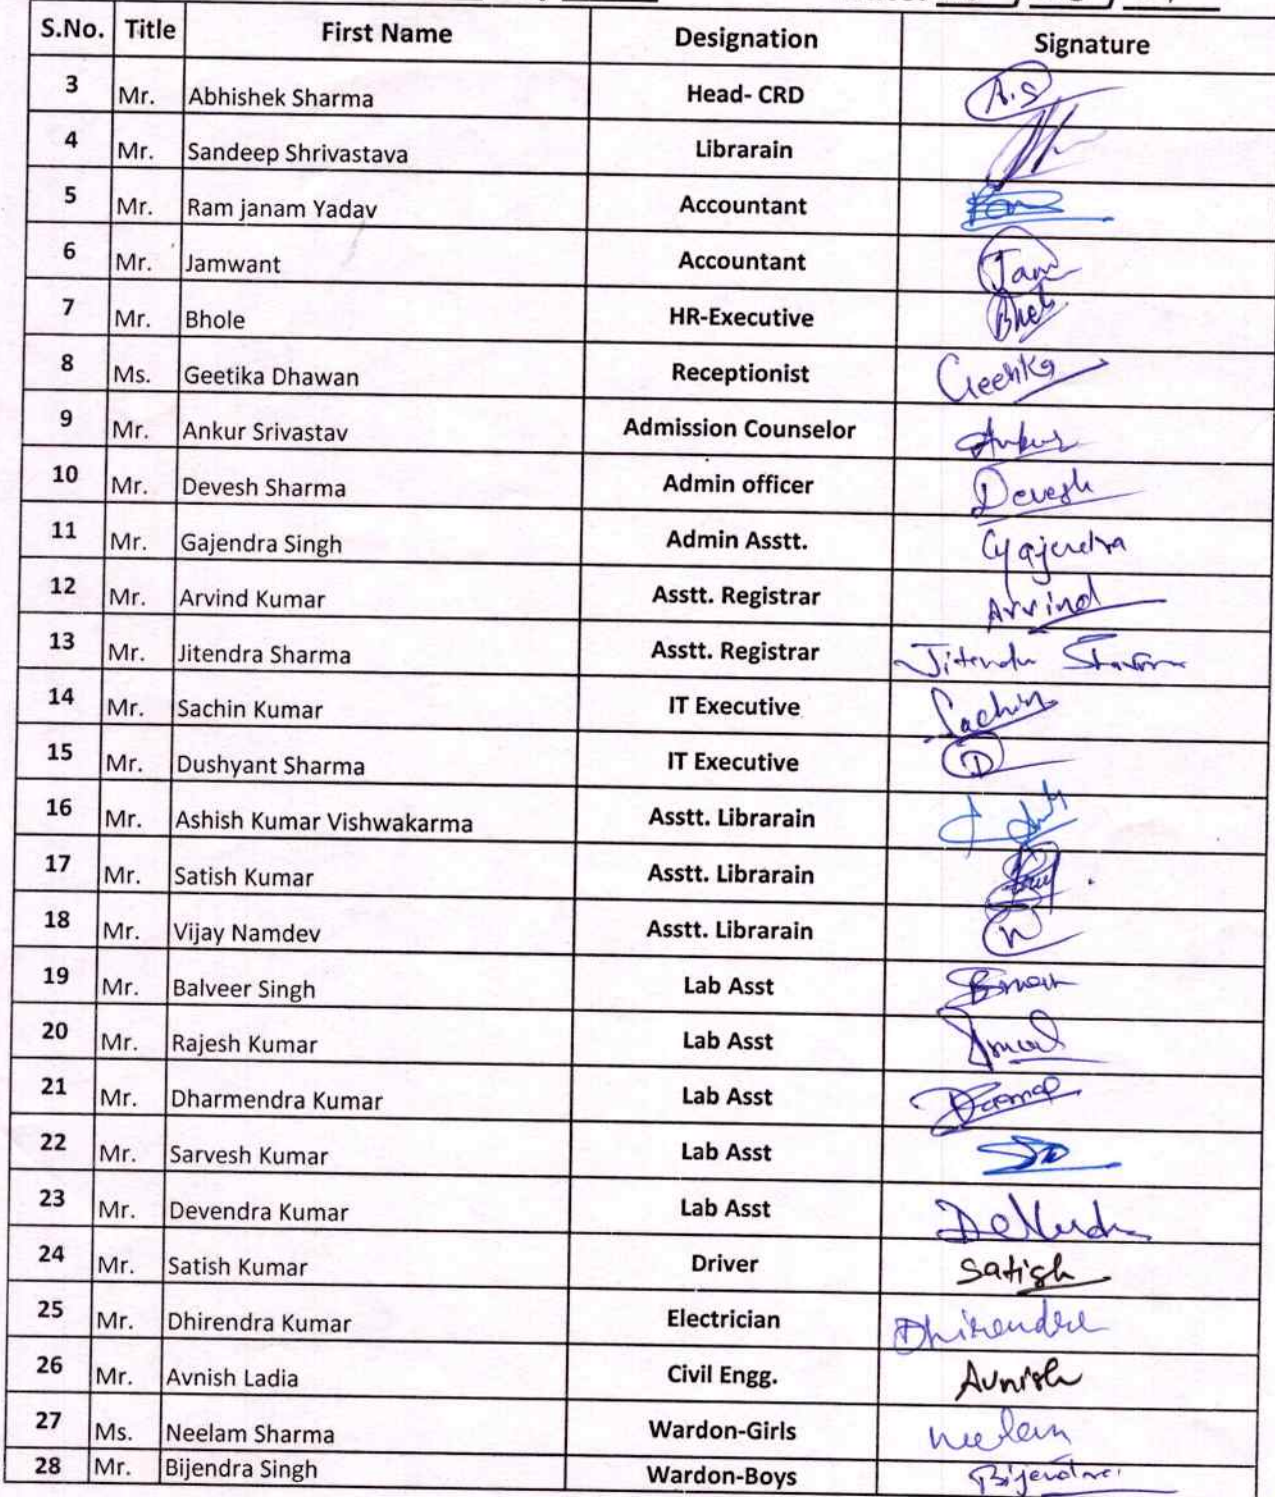 S.No. Title First Name Designation Signature
3 Mr. Abhishek Sharma Head- CRD A.S
4 Mr. Sandeep Shrivastava Librarain
5 Mr. Ram janam Yadav Accountant
6 Mr. Jamwant Accountant Jam
7 Mr. Bhole HR-Executive
8 Ms. Geetika Dhawan Receptionist Geetika
9 Mr. Ankur Srivastav Admission Counselor Ankur
10 Mr. Devesh Sharma Admin officer Devesh
11 Mr. Gajendra Singh Admin Asstt. Gajendra
12 Mr. Arvind Kumar Asstt. Registrar Arvind
13 Mr. Jitendra Sharma Asstt. Registrar Jitendra Sharma
14 Mr. Sachin Kumar IT Executive Sachin
15 Mr. Dushyant Sharma IT Executive D
16 Mr. Ashish Kumar Vishwakarma Asstt. Librarain
17 Mr. Satish Kumar Asstt. Librarain
18 Mr. Vijay Namdev Asstt. Librarain
19 Mr. Balveer Singh Lab Asst
20 Mr. Rajesh Kumar Lab Asst
21 Mr. Dharmendra Kumar Lab Asst
22 Mr. Sarvesh Kumar Lab Asst
23 Mr. Devendra Kumar Lab Asst
24 Mr. Satish Kumar Driver Satish
25 Mr. Dhirendra Kumar Electrician Dhirendra
26 Mr. Avnish Ladia Civil Engg. Avnish
27 Ms. Neelam Sharma Wardon-Girls Neelam
28 Mr. Bijendra Singh Wardon-Boys Bijendra